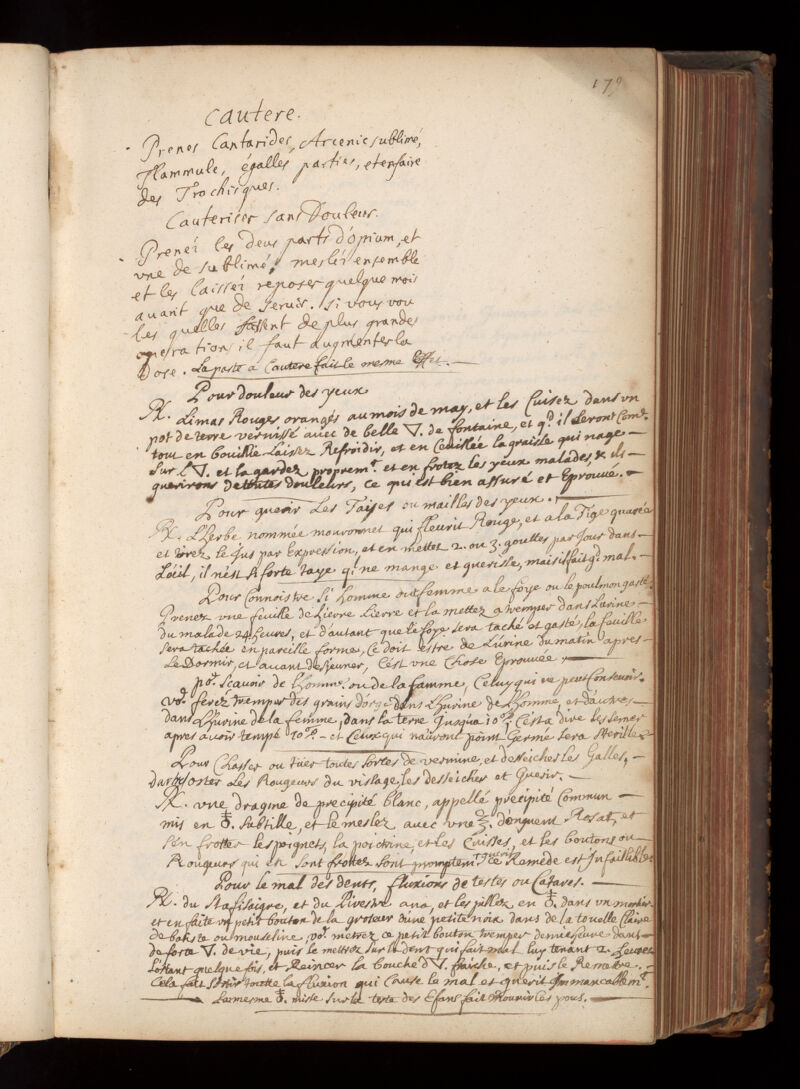 179
Cautere.
Prenes Cantarides, Arcenic sublimé,
flammule, égalles parties, et en faire
des Trochisques.
Cauteriser sans Douleur.
Prenéz les deus parts d'opium, et
vne de sublimé, meslés ensemble
et les laisséz reposer quelque mois
auant que de seruir. si vous vou
lés quelles fassent de plus grandes
operations il faut augmenter la
Dose. La paste a Cautere fait le mesme effet.
Pour douleur des yeux
℞. Limas Rouges orangés au mois de may, et les Cuisez dans vn
pot de terre vernissé auec de belle ▽. de fontaine, et qd. il seront Come
tout en bouillie Laissez Refroidir, et en Ceuillée la graisse qui nage
sur l'▽. et la gardez propremt. et en frotez les yeux malades, & ils
guerirons de toutes douleurs, ce qui est bien assuré et Eprouué.
Pour guerir Les Taÿes ou mailles des yeux.
℞. L'herbe nommée mouronnet qui fleurit Rouge, et a la Tige quarée
et tirez le Jus par Expression, et en mettez 2. ou 3. gouttes par Jour dans
L'œil, il n'est si forte taye q. ne mange et guerisse, mais il fait gd. mal.
Pour Connoistre Si homme out femme a le foye ou le poulmon gasté
Prenez vne feuille de Lierre et la mettez a tremper dans L'urine
du malade 24 heures, et d'autant que le foye sera taché et gasté, la feuille
sera tachée en pareille forme, Ce doit estre de L'urine du matin apres
Le Dormir, et auant desjeuner, C'est vne Chose Eprouuée.
por. Scauoir de L'homme ou de la famme, Celuy qui ne peut Conseuoir.
vos. ferez tremper des grains d'orge dans L'hurine de L'homme, et d'autres
dans L'hurine de la femme, dans la terre Jusqua 10 C'est a dire les semer
apres auoir tempé et Ceux qui n'auront point Germé sera Sterille
Pour Chasser ou tuer toutes sortes de vermine, et desseicher les Galles,
Dartres ostes Les Rougeurs du vissage, les desseicher et Guerir.
℞. vne dragme de precipité blanc, appellé precipité Commun
mis en subtille, et le meslez auec vne ℥. d'onguent Rosat, et
s'en frotter les poignets, la poictrine, et les Cuisses, et les boutons ou
Rougeurs qui en sont frottez sont promptemt. gueris Ce Remede est Infaillible
Pour le mal des dents, fluxions de testes ou Catares.
℞. du Stafisaigre, et du Piretre ana, et les pillez en dans vn mortier
et en faite vn petit bouton de la groseur d'une petite noix dans de la touelle Claire
de batiste ou mouseline, vos. metrez ce petit bouton tremper demie heure dans
de forte ▽. de vie, puis le mettrez sur la dent qui fait mal luy tenant 2. heures
L'ostant quelque fois, et Reincer la bouche d'▽. fraiche, et puis le Remettre.
Cela fait sortir toutte la fluxion qui Cause le mal et guerit Immancablemt.
La mesme mise sur la teste des Efans fait Mourir les pous.